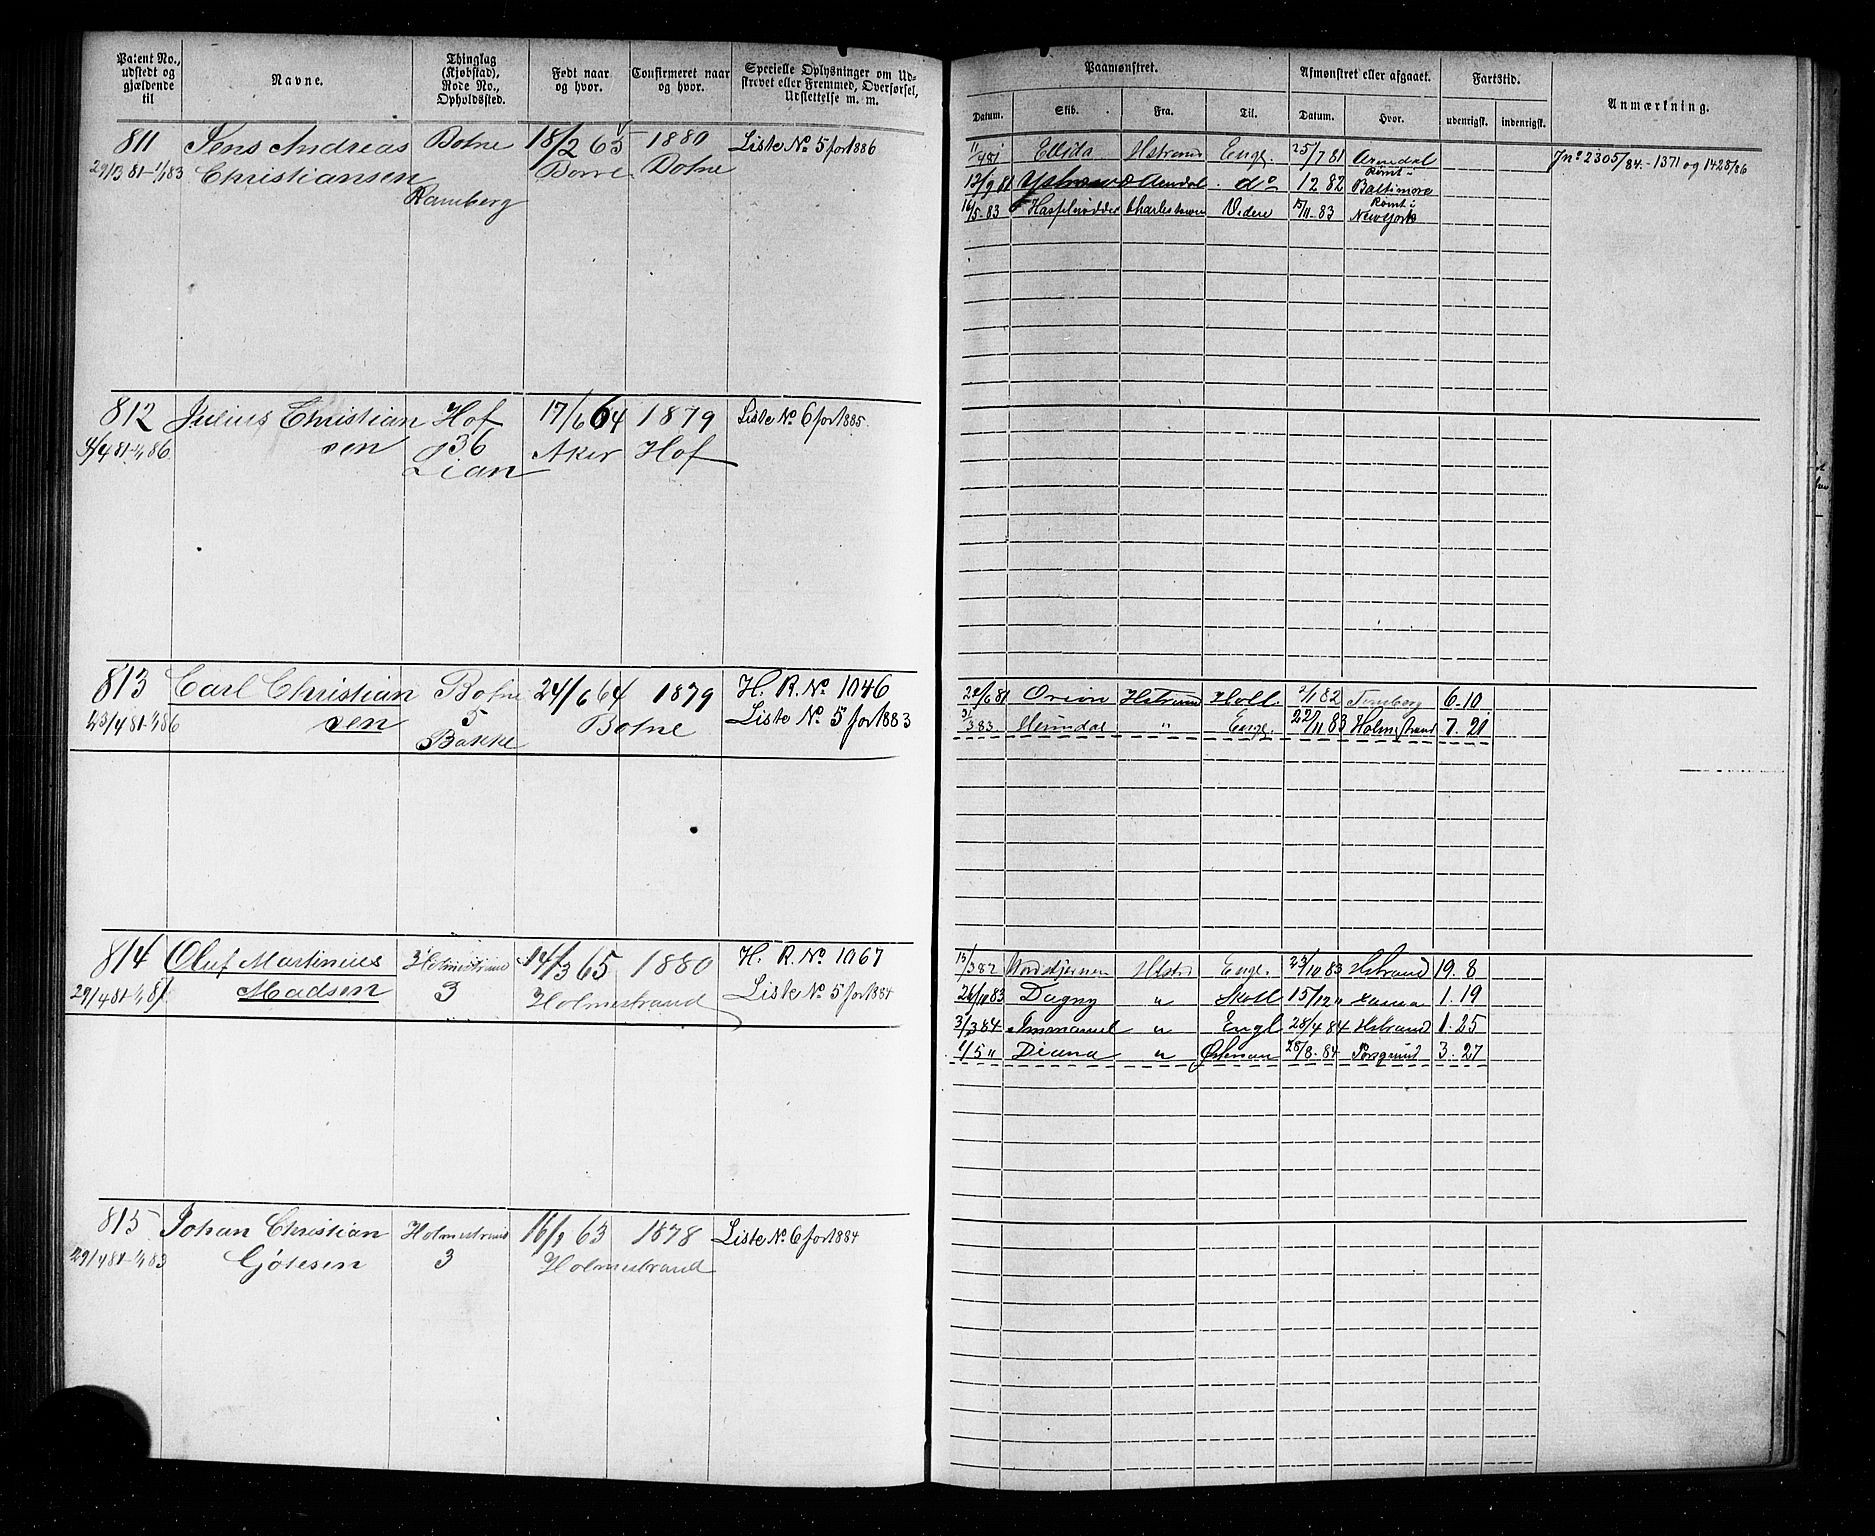 Patent No., udstedt og gjældende til
Navne.
Thinglag (Kjøbstad), Rode No., Opholdssted.
Født naar og hvor.
Confirmeret naar og hvor.
Specielle Oplysninger om Udskrevet eller Fremmed, Overførsel, Udslettelse m. m.
811 Jens Andreas Botne 18/2 65 1880 Liste No 5 for 1886
29/3 81-1/1 83 Christiansen Borre Botne
Ramberg
812 Julius Christian Hof 17/6 64 1879 Liste No 6 for 1885
4/4 81-1/1 86 sen 36 Aker Hof
Lian
813 Carl Christian Botne 24/6 64 1879 H. R. No 1046
23/4 81-1/1 86 sen 5 Botne Liste No 5 for 1883
Bakke
814 Oluf Martinius Holmestrand 14/3 65 1880 H. R. No 1067
29/4 81-1/1 81 Madsen 3 Holmestrand Liste No 5 for 1884
815 Johan Christian Holmestrand 16/9 63 1878 Liste No 6 for 1884
29/4 81-1/1 83 Gjótesen 3 Holmestrand
Paamønstret.
Afmønstret eller afgaaet.
Fartstid.
Anmærkning.
Datum. Skib. Fra. Til. Datum. Hvor. udenrigsk. indenrigsk.
11/4 81 Ellida Hstrand Engl. 25/7 81 Arendal Jno 2305/84.-1371 og 1428/86
12/9 81 Arendal do 1 2 82 Rømt i Baltimore
16/5-83 Charlestown Videre 15/11-83 Rømt i Newyork
22/6 81 Orion Hstrand Holl. 2/1 82 Tønsberg 6.10
31/3 83 " Engl. 22/11 83 Holmestrand 7.21
15/3 82 Nordstjernen Hstrd Engl. 23/10 83 Hstrand 19.8
26/10 83 Dagny " Skotl 15/12 " 1.19
3/3 84 Immanuel " Engl 28/4 84 Hstrand 1.25
1/5 " Diana " 28/8-84 Porsgrund 3.27